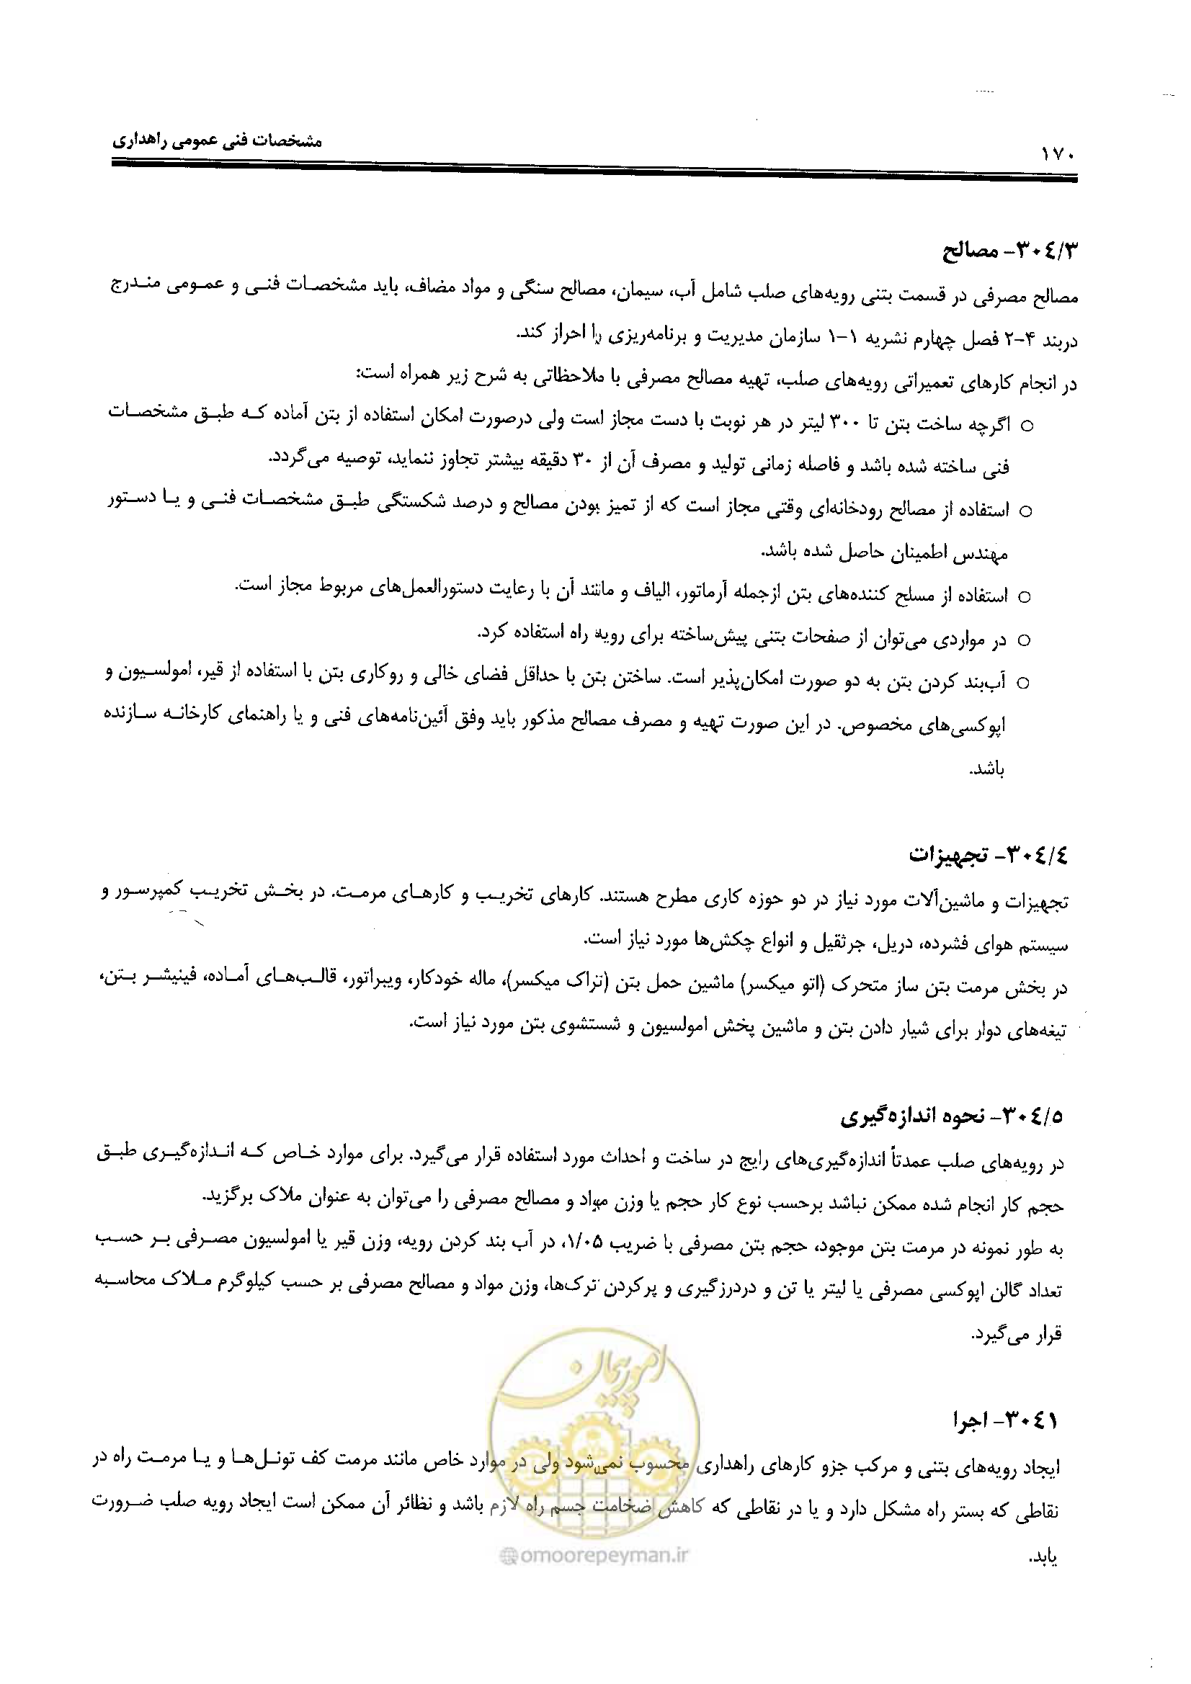 مشخصات فنی عمومی راهداری
۱۷۰
۳۰٤/۳- مصالح
مصالح مصرفی در قسمت بتنی رویه‌های صلب شامل آب، سیمان، مصالح سنگی و مواد مضاف، باید مشخصات فنی و عمومی مندرج
دربند ۴-۲ فصل چهارم نشریه ۱-۱ سازمان مدیریت و برنامه‌ریزی را احراز کند.
در انجام کارهای تعمیراتی رویه‌های صلب، تهیه مصالح مصرفی با ملاحظاتی به شرح زیر همراه است:
○ اگرچه ساخت بتن تا ۳۰۰ لیتر در هر نوبت با دست مجاز است ولی درصورت امکان استفاده از بتن آماده که طبق مشخصات
فنی ساخته شده باشد و فاصله زمانی تولید و مصرف آن از ۳۰ دقیقه بیشتر تجاوز ننماید، توصیه می‌گردد.
○ استفاده از مصالح رودخانه‌ای وقتی مجاز است که از تمیز بودن مصالح و درصد شکستگی طبق مشخصات فنی و یا دستور
مهندس اطمینان حاصل شده باشد.
○ استفاده از مسلح کننده‌های بتن ازجمله آرماتور، الیاف و مانند آن با رعایت دستورالعمل‌های مربوط مجاز است.
○ در مواردی می‌توان از صفحات بتنی پیش‌ساخته برای رویه راه استفاده کرد.
○ آب‌بند کردن بتن به دو صورت امکان‌پذیر است. ساختن بتن با حداقل فضای خالی و روکاری بتن با استفاده از قیر، امولسیون و
اپوکسی‌های مخصوص. در این صورت تهیه و مصرف مصالح مذکور باید وفق آئین‌نامه‌های فنی و یا راهنمای کارخانه سازنده
باشد.
۳۰٤/٤- تجهیزات
تجهیزات و ماشین‌آلات مورد نیاز در دو حوزه کاری مطرح هستند. کارهای تخریب و کارهای مرمت. در بخش تخریب کمپرسور و
سیستم هوای فشرده، دریل، جرثقیل و انواع چکش‌ها مورد نیاز است.
در بخش مرمت بتن ساز متحرک (اتو میکسر) ماشین حمل بتن (تراک میکسر)، ماله خودکار، ویبراتور، قالب‌های آماده، فینیشر بتن،
تیغه‌های دوار برای شیار دادن بتن و ماشین پخش امولسیون و شستشوی بتن مورد نیاز است.
۳۰٤/۵- نحوه اندازه‌گیری
در رویه‌های صلب عمدتاً اندازه‌گیری‌های رایج در ساخت و احداث مورد استفاده قرار می‌گیرد. برای موارد خاص که اندازه‌گیری طبق
حجم کار انجام شده ممکن نباشد برحسب نوع کار حجم یا وزن مواد و مصالح مصرفی را می‌توان به عنوان ملاک برگزید.
به طور نمونه در مرمت بتن موجود، حجم بتن مصرفی با ضریب ۱/۰۵، در آب بند کردن رویه، وزن قیر یا امولسیون مصرفی بر حسب
تعداد گالن اپوکسی مصرفی یا لیتر یا تن و دردرزگیری و پرکردن ترک‌ها، وزن مواد و مصالح مصرفی بر حسب کیلوگرم ملاک محاسبه
قرار می‌گیرد.
امور پیمان
۳۰٤۱- اجرا
ایجاد رویه‌های بتنی و مرکب جزو کارهای راهداری محسوب نمی‌شود ولی در موارد خاص مانند مرمت کف تونل‌ها و یا مرمت راه در
نقاطی که بستر راه مشکل دارد و یا در نقاطی که کاهش ضخامت جسم راه لازم باشد و نظائر آن ممکن است ایجاد رویه صلب ضرورت
یابد.
@omoorepeyman.ir